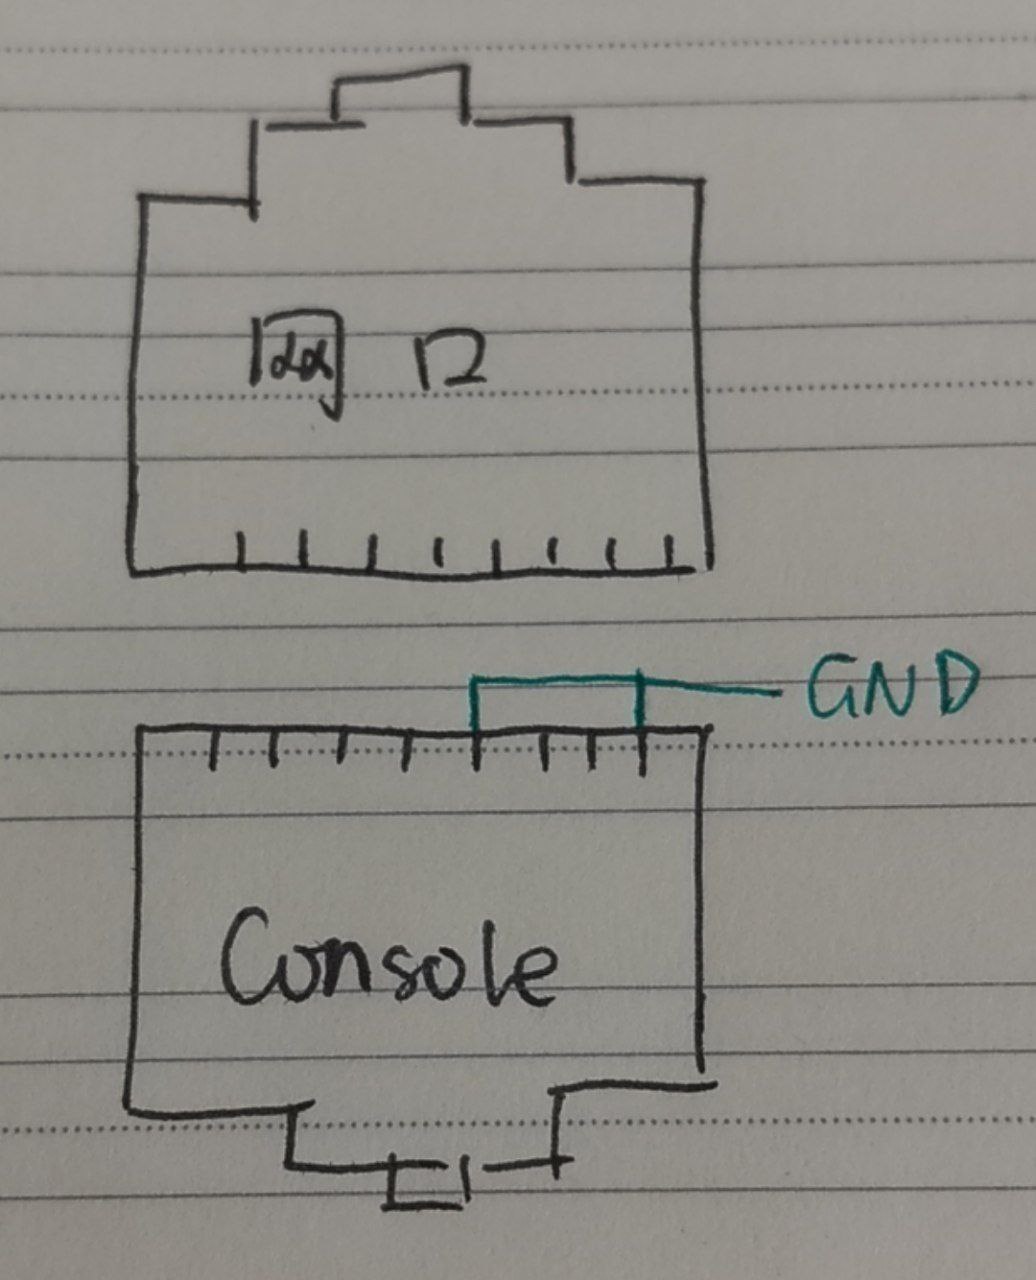 网口
GND
Console